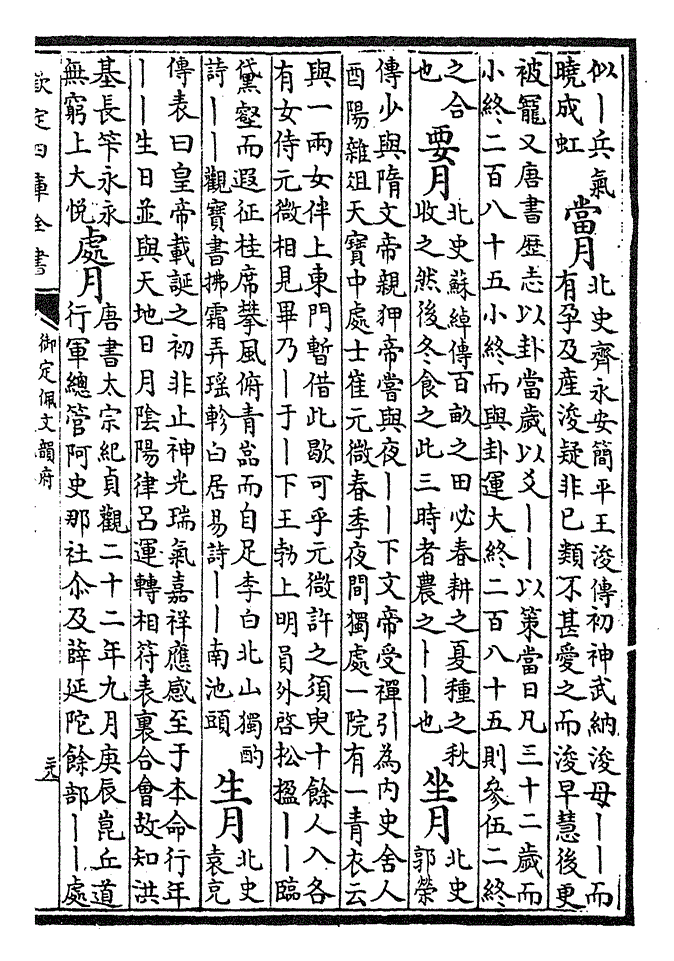 似丨兵氣
曉成虹
當月
北史齊永安簡平王浚傳初神武納浚母丨丨而
有孕及産浚疑非已類不甚愛之而浚早慧後更
被寵又唐書歴志以卦當歲以爻丨丨以策當日凡三十二歲而
小終二百八十五小終而與卦運大終二百八十五則參伍二終
之合
也
要月
北史蘇綽傳百畝之田必春耕之夏種之秋
收之然後冬食之此三時者農之丨丨也
坐月
北史
郭榮
傳少與隋文帝親狎帝嘗與夜丨丨下文帝受禪引為内史舍人
酉陽雜俎天寶中處士崔元微春季夜間獨處一院有一青衣云
與一兩女伴上東門暫借此歇可乎元微許之須臾十餘人入各
有女侍元微相見畢乃丨于丨下王勃上明員外啓松楹丨丨臨
黛壑而遐征桂席攀風俯青嵓而自足李白北山獨酌
詩丨丨觀寶書拂霜弄瑶軫白居易詩丨丨南池頭
生月
北史
袁充
傳表曰皇帝載誕之初非止神光瑞氣嘉祥應感至于本命行年
丨丨生日並與天地日月陰陽律吕運轉相符表裏合會故知洪
基長筭永永
無窮上大悅
處月
唐書太宗紀貞觀二十二年九月庚辰崑丘道
行軍總管阿史那社尒及薛延陀餘部丨丨處
欽定四庫全書
御定佩文韻府